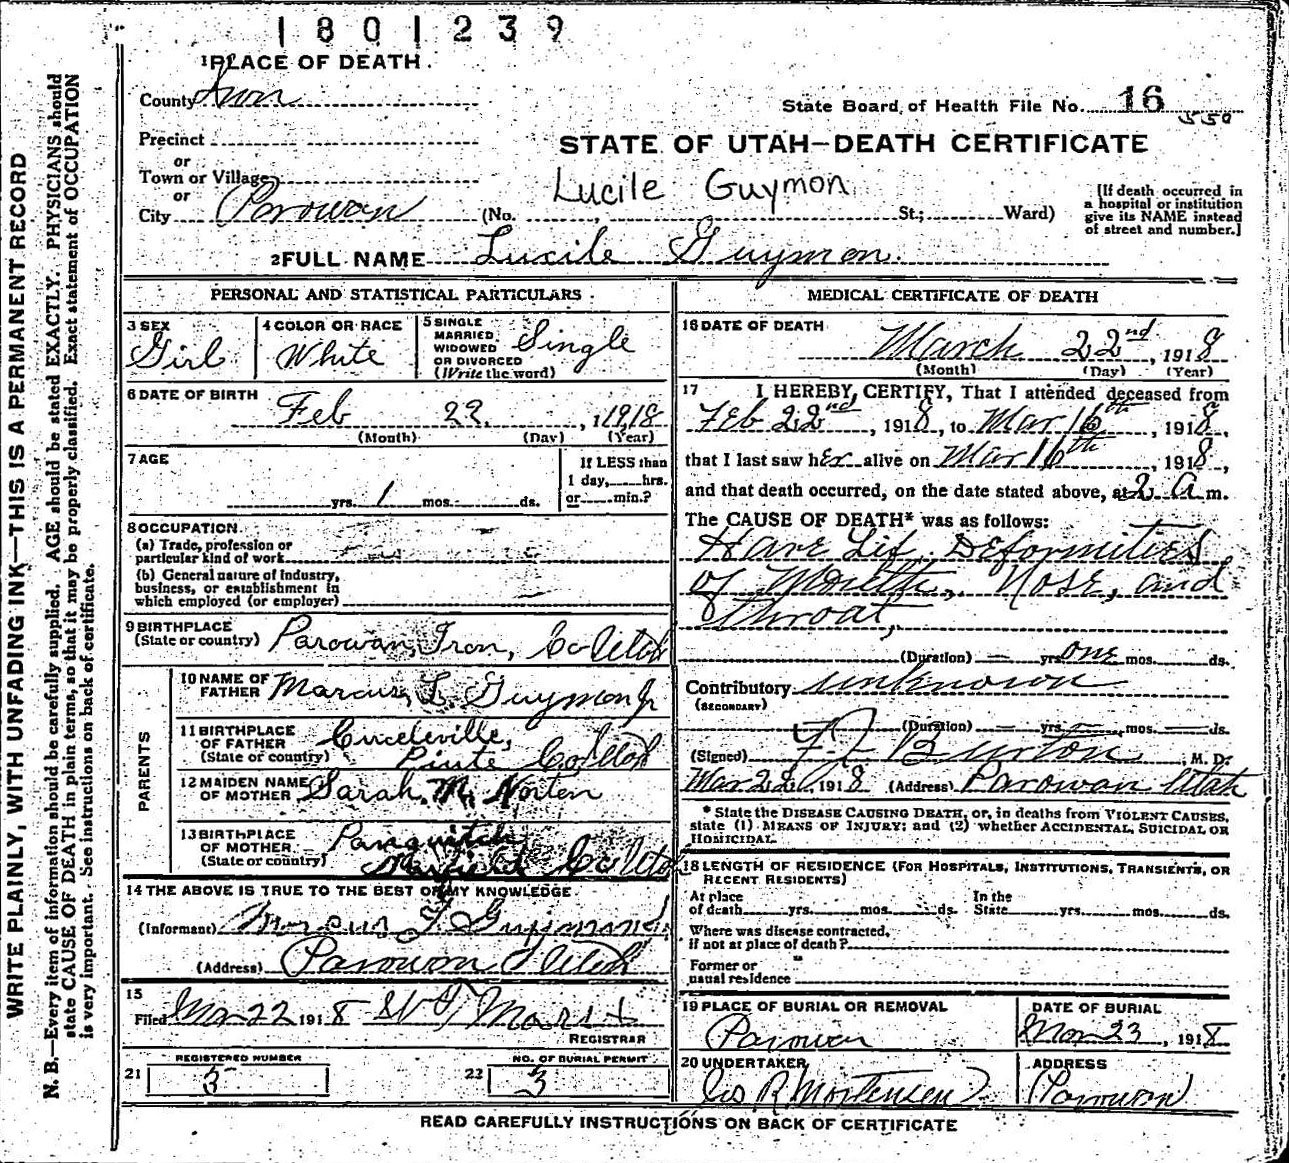 1801239
1 PLACE OF DEATH.
County Iron
State Board of Health File No. 16
550
Precinct
STATE OF UTAH—DEATH CERTIFICATE
or
Town or Village
Lucile Guymon
or
City Parowan (No. , St.; Ward)
[If death occurred in
a hospital or institution
give its NAME instead
of street and number.]
2 FULL NAME Lucile Guymon.
PERSONAL AND STATISTICAL PARTICULARS
3 SEX
Girl
4 COLOR OR RACE
White
5 SINGLE
MARRIED
WIDOWED
OR DIVORCED
(Write the word)
Single
6 DATE OF BIRTH
Feb 22 , 1918
(Month) (Day) (Year)
7 AGE
yrs. 1 mos. ds.
If LESS than
1 day, hrs.
or min.?
8 OCCUPATION
(a) Trade, profession or
particular kind of work
(b) General nature of industry,
business, or establishment in
which employed (or employer)
9 BIRTHPLACE
(State or country) Parowan, Iron, Co Utah
PARENTS
10 NAME OF
FATHER Marcus L. Guymon Jr
11 BIRTHPLACE
OF FATHER
(State or country)
Circleville,
Piute Co Utah
12 MAIDEN NAME
OF MOTHER Sarah M. Norten
13 BIRTHPLACE
OF MOTHER
(State or country)
Panguitch
Garfield Co Utah
14 THE ABOVE IS TRUE TO THE BEST OF MY KNOWLEDGE
(Informant) Marcus L. Guymon
(Address) Parowan Utah
15
Filed Mar 22 1918
REGISTRAR
21
REGISTERED NUMBER
3
22
NO. OF BURIAL PERMIT
3
MEDICAL CERTIFICATE OF DEATH
16 DATE OF DEATH
March 22nd , 1918
(Month) (Day) (Year)
17 I HEREBY CERTIFY, That I attended deceased from
Feb 22nd , 1918, to Mar 16th , 1918,
that I last saw her alive on Mar 16th , 1918,
and that death occurred, on the date stated above, at 2 a m.
The CAUSE OF DEATH* was as follows:
Hare Lip. Deformities
of Mouth, Nose, and
Throat,
(Duration) — yrs. one mos. ds.
Contributory unknown
(SECONDARY)
(Duration) — yrs. — mos. — ds.
(Signed) F J Burton , M. D.
Mar 22 1918 (Address) Parowan Utah
* State the DISEASE CAUSING DEATH, or, in deaths from VIOLENT CAUSES,
state (1) MEANS OF INJURY; and (2) whether ACCIDENTAL, SUICIDAL OR
HOMICIDAL.
18 LENGTH OF RESIDENCE (FOR HOSPITALS, INSTITUTIONS, TRANSIENTS, OR
RECENT RESIDENTS)
At place
of death yrs. mos. ds.
In the
State yrs. mos. ds.
Where was disease contracted,
if not at place of death?
Former or
usual residence
19 PLACE OF BURIAL OR REMOVAL
Parowan
DATE OF BURIAL
Mar 23 , 1918
20 UNDERTAKER
R Mortensen
ADDRESS
Parowan
READ CAREFULLY INSTRUCTIONS ON BACK OF CERTIFICATE
WRITE PLAINLY, WITH UNFADING INK—THIS IS A PERMANENT RECORD
N. B.—Every item of information should be carefully supplied. AGE should be stated EXACTLY. PHYSICIANS should
state CAUSE OF DEATH in plain terms, so that it may be properly classified. Exact statement of OCCUPATION
is very important. See instructions on back of certificate.